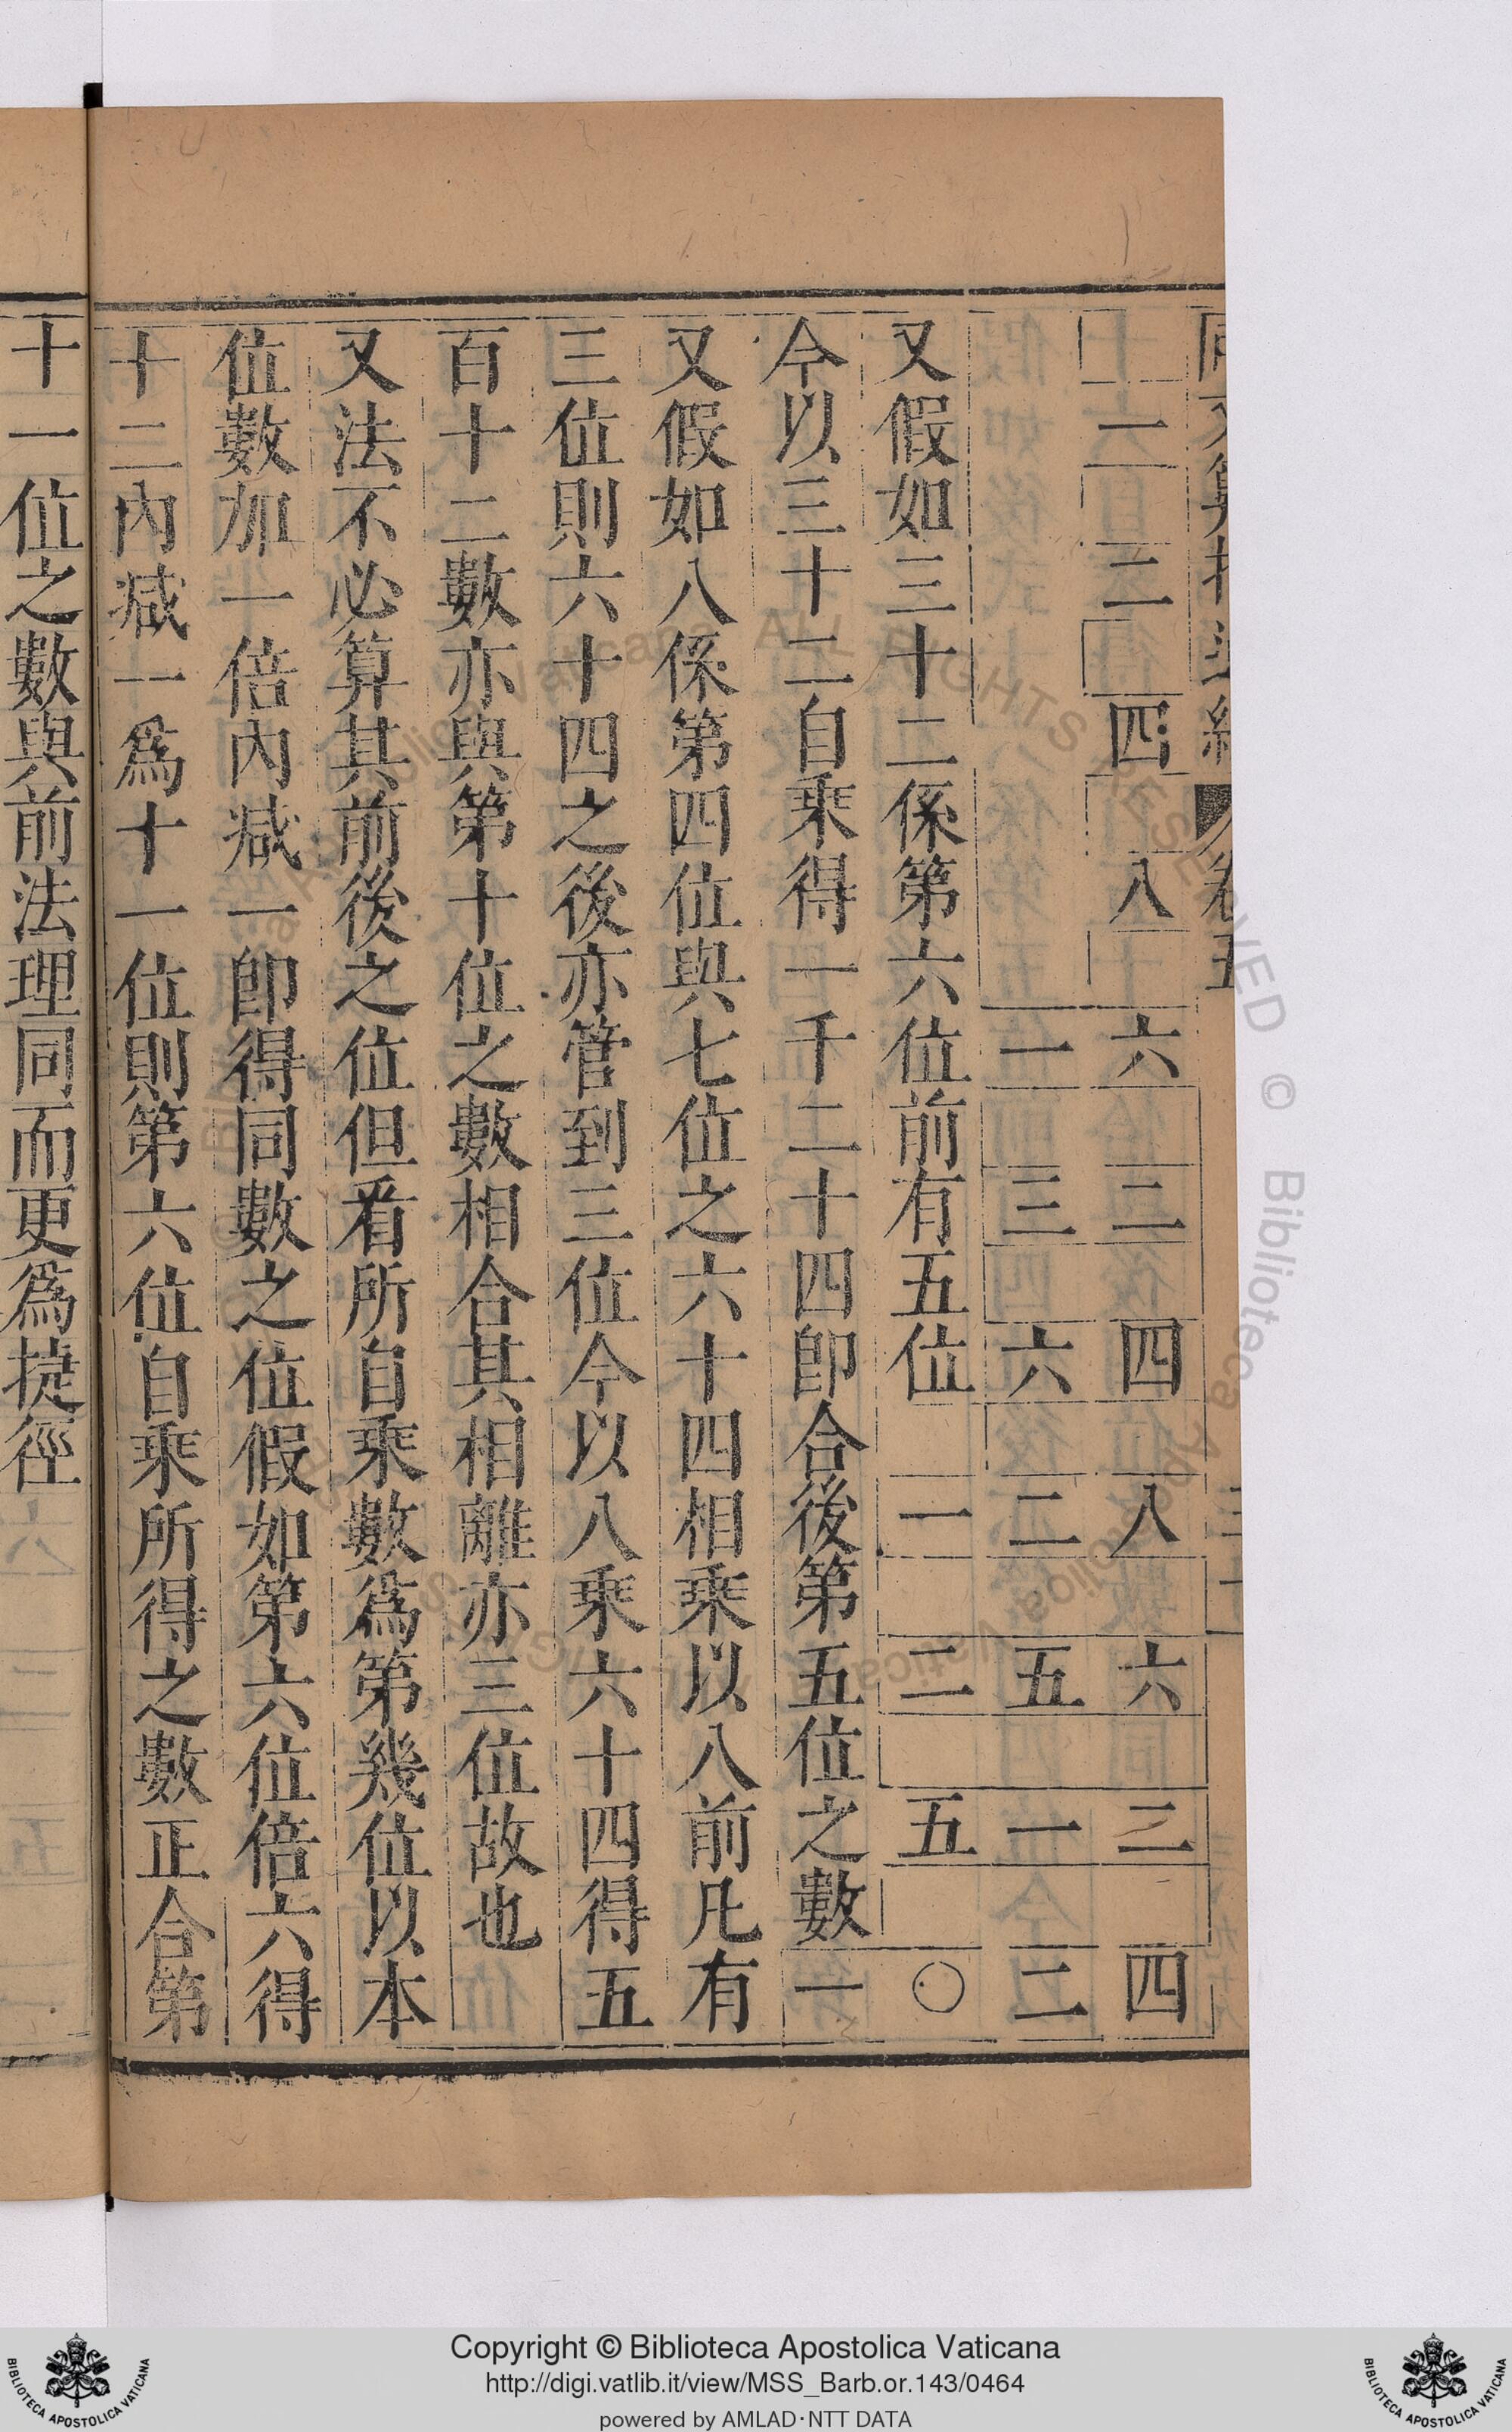 同文算指通編 卷五
一 二 四 八 六 二 四 八 六 二 四
一 三 六 二 五 一 二
又假如三十二係第六位前有五位 一 二 五 〇
今以三十二自乘得一千二十四卽合後第五位之數 一
又假如八係第四位與七位之六十四相乘以八前凡有
三位則六十四之後亦管到三位今以八乘六十四得五
百十二數亦與第十位之數相合其相離亦三位故也
又法不必算其前後之位但看所自乘數爲第幾位以本
位數加一倍內減一卽得同數之位假如第六位倍六得
十二內減一爲十一位則第六位自乘所得之數正合第
十一位之數與前法理同而更爲捷徑
Copyright © Biblioteca Apostolica Vaticana
http://digi.vatlib.it/view/MSS_Barb.or.143/0464
powered by AMLAD·NTT DATA
BIBLIOTECA APOSTOLICA VATICANA
BIBLIOTECA APOSTOLICA VATICANA